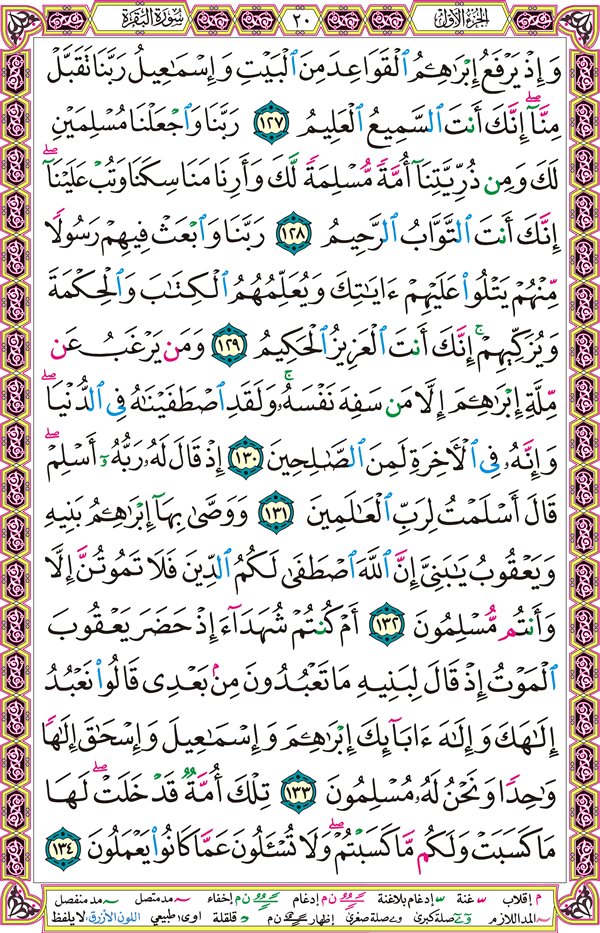 الجزء الأول
٢٠
سورة البقرة
وَإِذْ يَرْفَعُ إِبْرَاهِـۧمُ ٱلْقَوَاعِدَ مِنَ ٱلْبَيْتِ وَإِسْمَاعِيلُ رَبَّنَا تَقَبَّلْ
مِنَّآۖ إِنَّكَ أَنتَ ٱلسَّمِيعُ ٱلْعَلِيمُ ١٢٧ رَبَّنَا وَٱجْعَلْنَا مُسْلِمَيْنِ
لَكَ وَمِن ذُرِّيَّتِنَآ أُمَّةً مُّسْلِمَةً لَّكَ وَأَرِنَا مَنَاسِكَنَا وَتُبْ عَلَيْنَآۖ
إِنَّكَ أَنتَ ٱلتَّوَّابُ ٱلرَّحِيمُ ١٢٨ رَبَّنَا وَٱبْعَثْ فِيهِمْ رَسُولًا
مِّنْهُمْ يَتْلُوا۟ عَلَيْهِمْ ءَايَاتِكَ وَيُعَلِّمُهُمُ ٱلْكِتَابَ وَٱلْحِكْمَةَ
وَيُزَكِّيهِمْۚ إِنَّكَ أَنتَ ٱلْعَزِيزُ ٱلْحَكِيمُ ١٢٩ وَمَن يَرْغَبُ عَن
مِّلَّةِ إِبْرَاهِـۧمَ إِلَّا مَن سَفِهَ نَفْسَهُۥۚ وَلَقَدِ ٱصْطَفَيْنَاهُ فِى ٱلدُّنْيَاۖ
وَإِنَّهُۥ فِى ٱلْأَخِرَةِ لَمِنَ ٱلصَّـٰلِحِينَ ١٣٠ إِذْ قَالَ لَهُۥ رَبُّهُۥٓ أَسْلِمْۖ
قَالَ أَسْلَمْتُ لِرَبِّ ٱلْعَـٰلَمِينَ ١٣١ وَوَصَّىٰ بِهَآ إِبْرَاهِـۧمُ بَنِيهِ
وَيَعْقُوبُ يَـٰبَنِىَّ إِنَّ ٱللَّهَ ٱصْطَفَىٰ لَكُمُ ٱلدِّينَ فَلَا تَمُوتُنَّ إِلَّا
وَأَنتُم مُّسْلِمُونَ ١٣٢ أَمْ كُنتُمْ شُهَدَآءَ إِذْ حَضَرَ يَعْقُوبَ
ٱلْمَوْتُ إِذْ قَالَ لِبَنِيهِ مَا تَعْبُدُونَ مِنۢ بَعْدِى قَالُوا۟ نَعْبُدُ
إِلَـٰهَكَ وَإِلَـٰهَ ءَابَآئِكَ إِبْرَاهِـۧمَ وَإِسْمَاعِيلَ وَإِسْحَاقَ إِلَـٰهًا
وَاحِدًا وَنَحْنُ لَهُۥ مُسْلِمُونَ ١٣٣ تِلْكَ أُمَّةٌ قَدْ خَلَتْۖ لَهَا
مَا كَسَبَتْ وَلَكُم مَّا كَسَبْتُمْۖ وَلَا تُسْـَٔلُونَ عَمَّا كَانُوا۟ يَعْمَلُونَ ١٣٤
م إقلاب غنة إدغام بلاغنة ن م إدغام ن م إخفاء مد متصل مد منفصل
المد اللازم صلة كبرى صلة صغرى إظهار ن م قلقلة اوى طبيعي اللون الأزرق: لا يلفظ